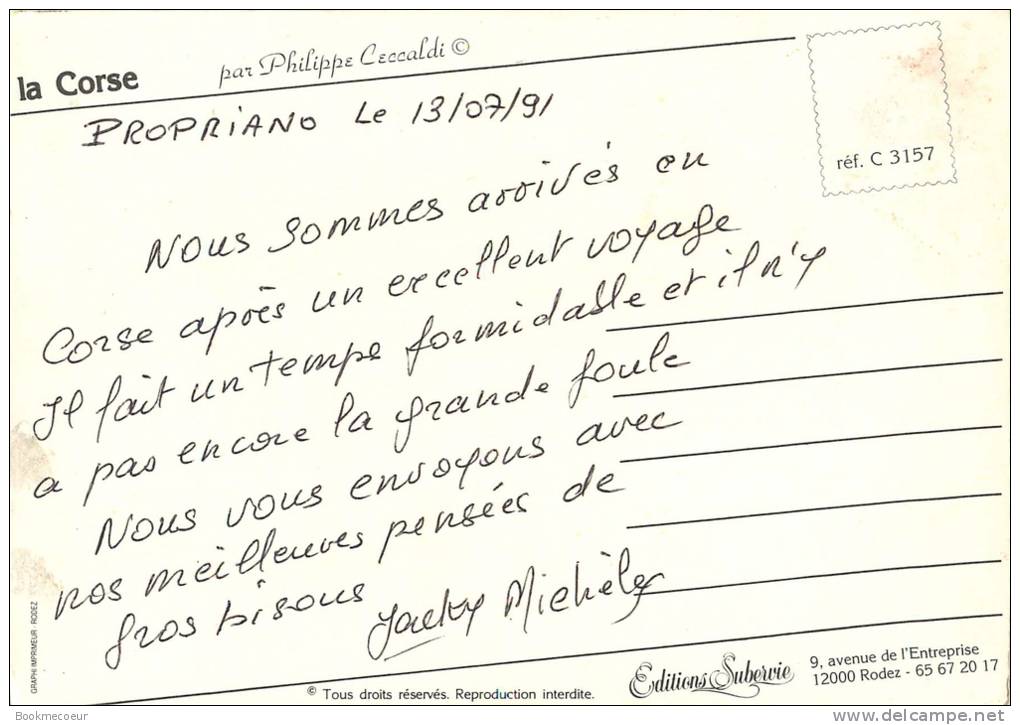 la Corse
par Philippe Ceccaldi ©
réf. C 3157
PROPRIANO Le 13/07/91
Nous sommes arrivés en
Corse après un excellent voyage
Il fait un temps formidable et il n'y
a pas encore la grande foule
Nous vous envoyons avec
nos meilleures pensées de
gros bisous
Jacky Michèle
GRAPHI IMPRIMEUR - RODEZ
© Tous droits réservés. Reproduction interdite.
Editions Subervie
9, avenue de l'Entreprise
12000 Rodez - 65 67 20 17
Bookmecoeur
www.delcampe.net